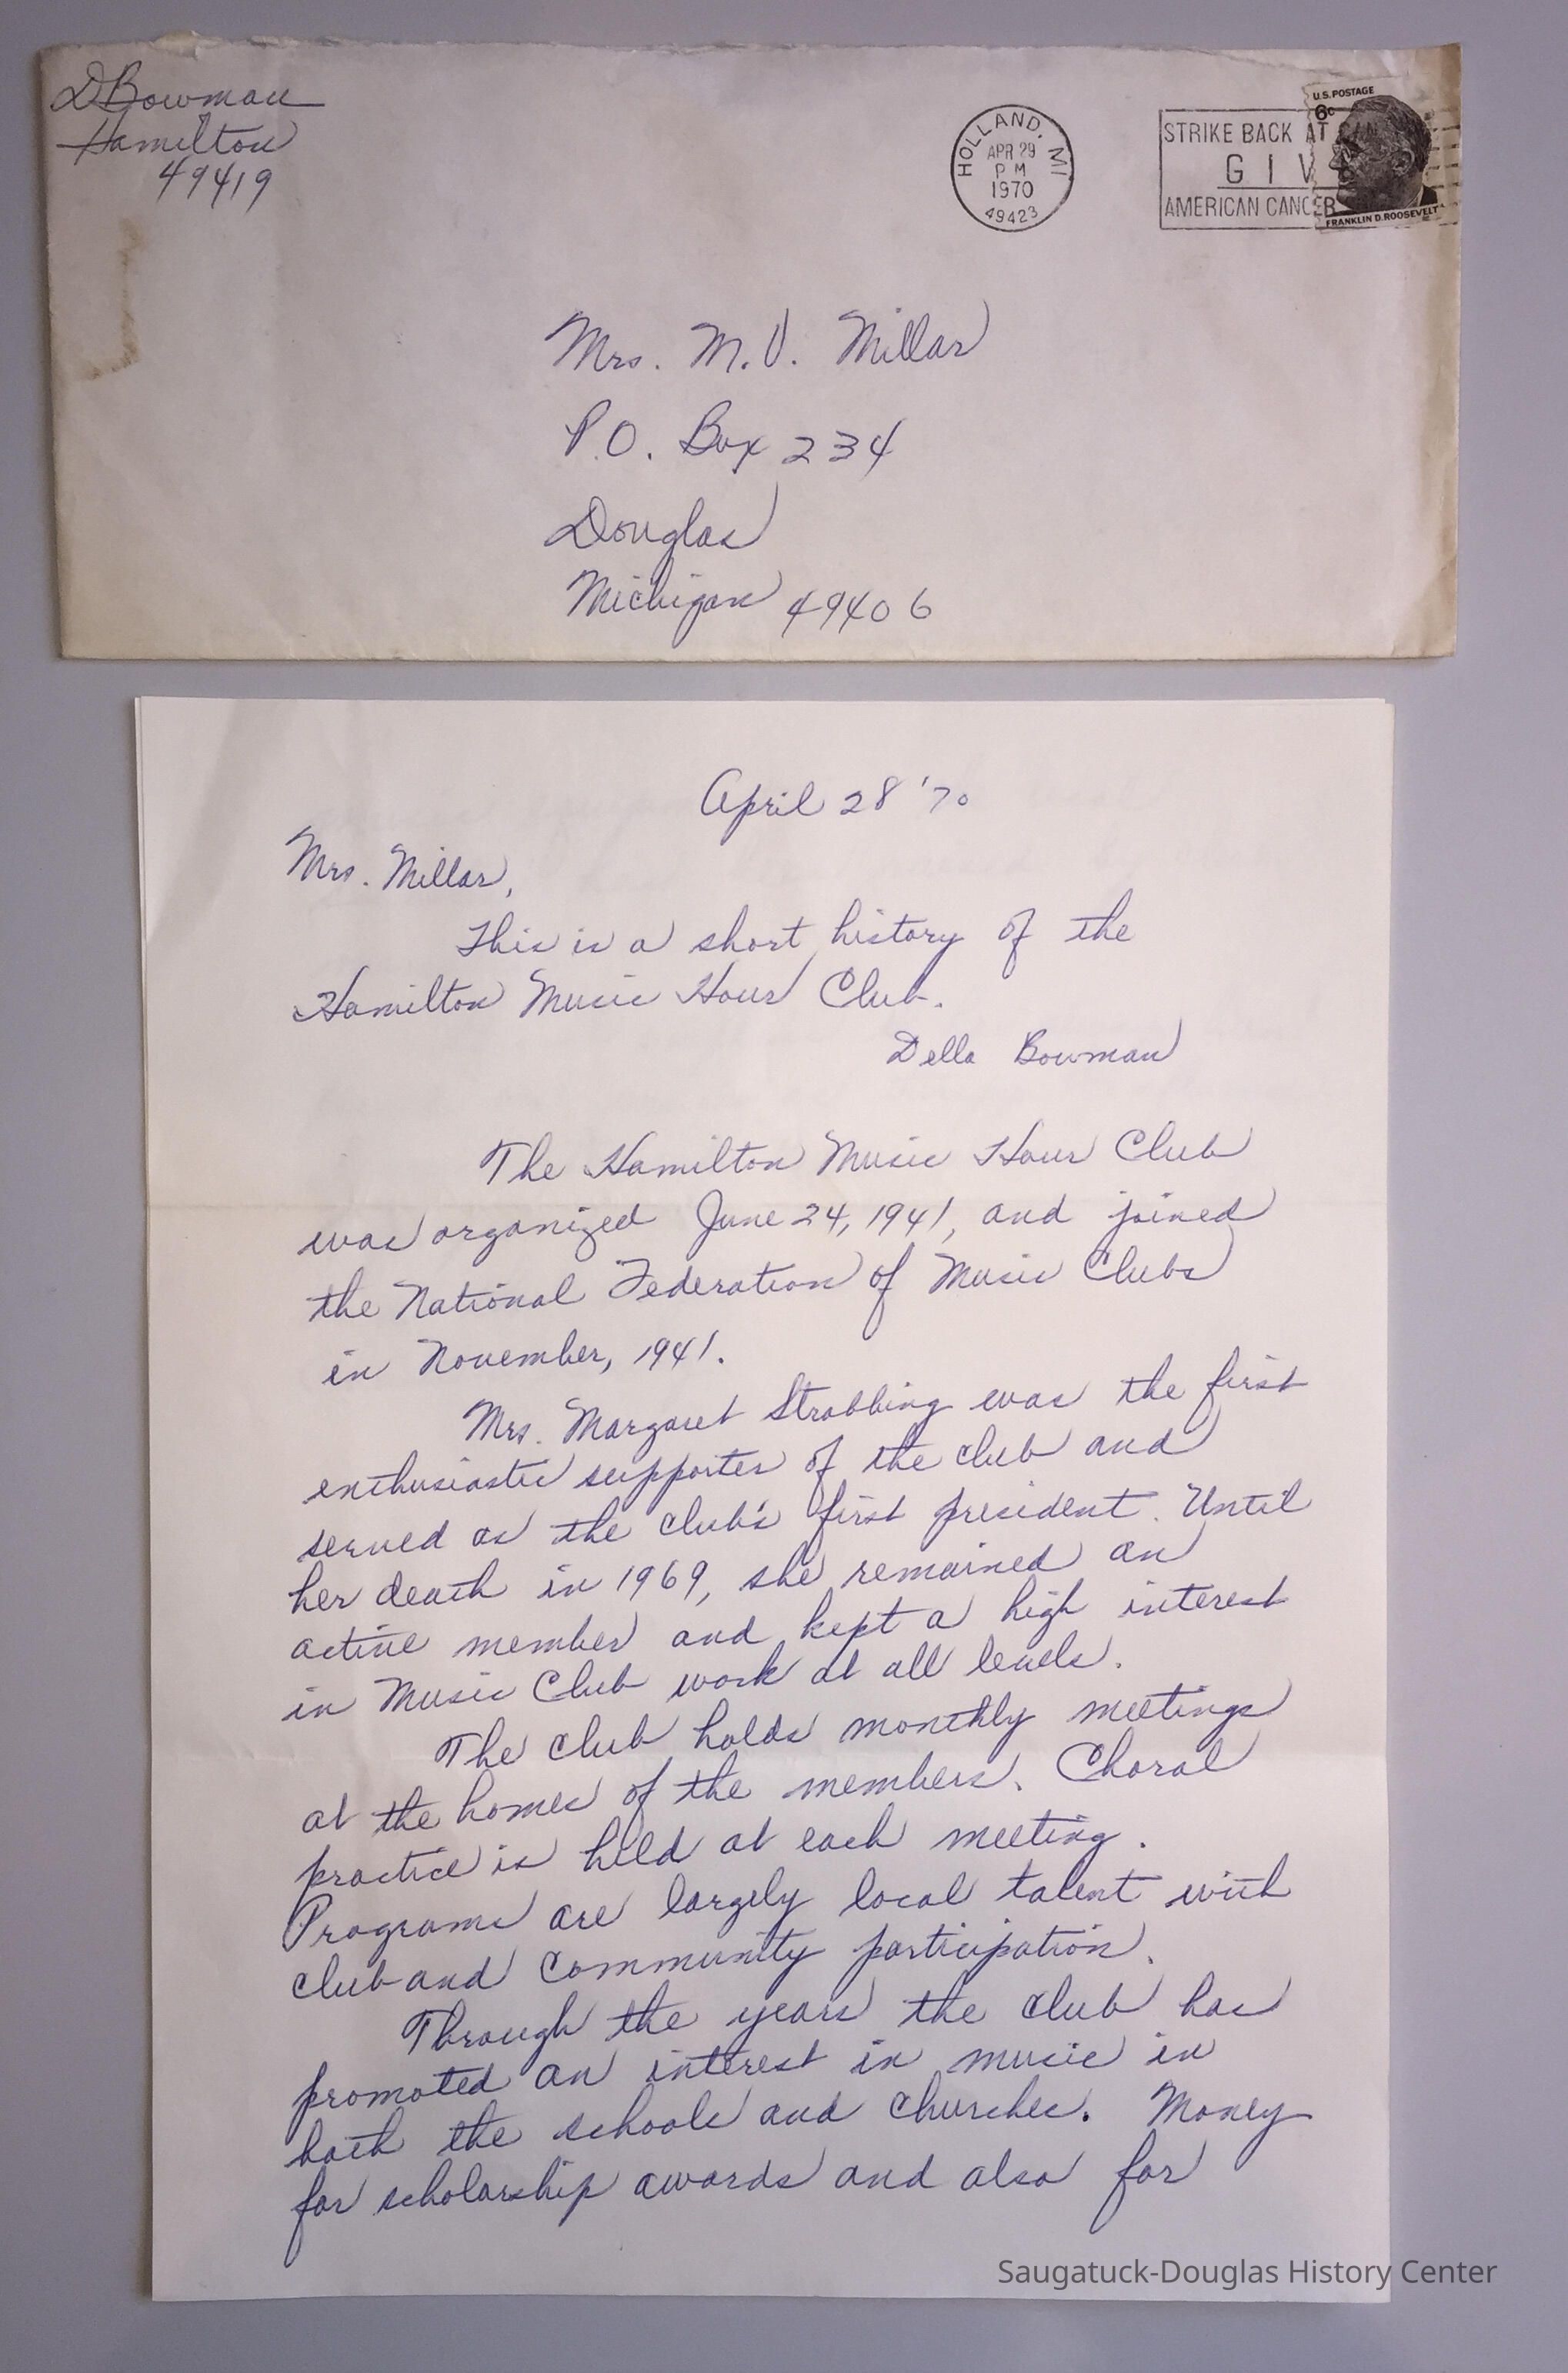 D Bowman
Hamilton
49419
HOLLAND, MI
APR 29
PM
1970
49423
STRIKE BACK AT CAN
GIV
AMERICAN CANCER
U.S. POSTAGE
6c
FRANKLIN D. ROOSEVELT
Mrs. M.V. Millar
P.O. Box 234
Douglas
Michigan 49406
April 28 '70
Mrs. Millar,
This is a short history of the
Hamilton Music Hour Club.
Della Bowman
The Hamilton Music Hour Club
was organized June 24, 1941, and joined
the National Federation of Music Clubs
in November, 1941.
Mrs. Margaret Strabbing was the first
enthusiastic supporter of the club and
served as the club's first president. Until
her death in 1969, she remained an
active member and kept a high interest
in Music Club work at all levels.
The club holds monthly meetings
at the homes of the members. Choral
practice is held at each meeting.
Programs are largely local talent with
club and community participation.
Through the years the club has
promoted an interest in music in
both the schools and churches. Money
for scholarship awards and also for
Saugatuck-Douglas History Center